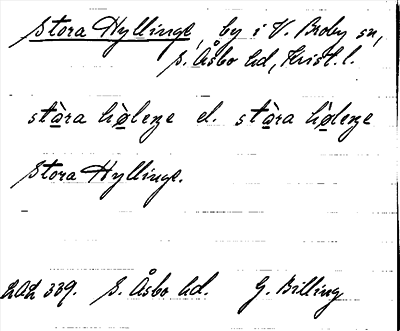 Stora Hyllinge, by i V. Broby sn,
S. Åsbo hd, Krist. l.
stòra hòlenge el. stòra hòlenge
Stora Hyllinge.
LAL 339. S. Åsbo hd. G. Billing